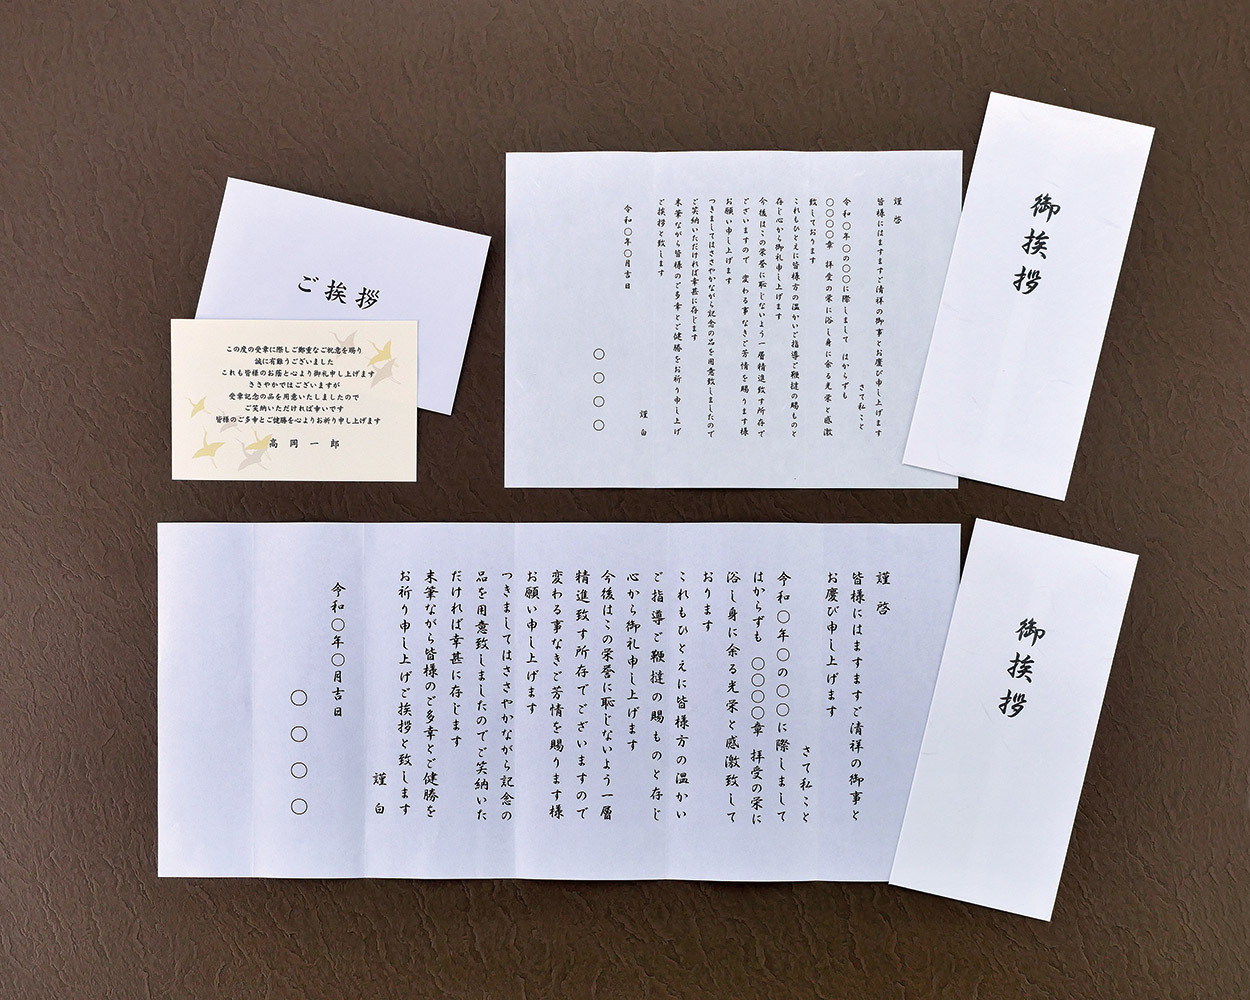 ご挨拶
この度の受章に際しご鄭重なご祝意を賜り
誠に有難うございました
これも皆様のお蔭と心より御礼申し上げます
ささやかではございますが
受章記念の品を用意いたしましたので
ご笑納いただければ幸いです
皆様のご多幸とご健勝を心よりお祈り申し上げます
高岡一郎
謹啓
皆様にはますますご清祥の御事とお慶び申し上げます
さて私こと
令和〇年〇の〇〇に際しまして はからずも
〇〇〇〇章 拝受の栄に浴し身に余る光栄と感激
致しております
これもひとえに皆様方の温かいご指導ご鞭撻の賜ものと
存じ心から御礼申し上げます
今後はこの栄誉に恥じないよう一層精進致す所存で
ございますので 変わる事なきご芳情を賜ります様
お願い申し上げます
つきましてはささやかながら記念の品を用意致しましたので
ご笑納いただければ幸甚に存じます
末筆ながら皆様のご多幸とご健勝をお祈り申し上げ
ご挨拶と致します
謹白
令和〇年〇月吉日
〇〇〇〇
御挨拶
謹啓
皆様にはますますご清祥の御事と
お慶び申し上げます
さて私こと
令和〇年〇の〇〇に際しまして
はからずも 〇〇〇〇章 拝受の栄に
浴し身に余る光栄と感激致して
おります
これもひとえに皆様方の温かい
ご指導ご鞭撻の賜ものと存じ
心から御礼申し上げます
今後はこの栄誉に恥じないよう一層
精進致す所存でございますので
変わる事なきご芳情を賜ります様
お願い申し上げます
つきましてはささやかながら記念の
品を用意致しましたのでご笑納いた
だければ幸甚に存じます
末筆ながら皆様のご多幸とご健勝を
お祈り申し上げご挨拶と致します
謹白
令和〇年〇月吉日
〇〇〇〇
御挨拶